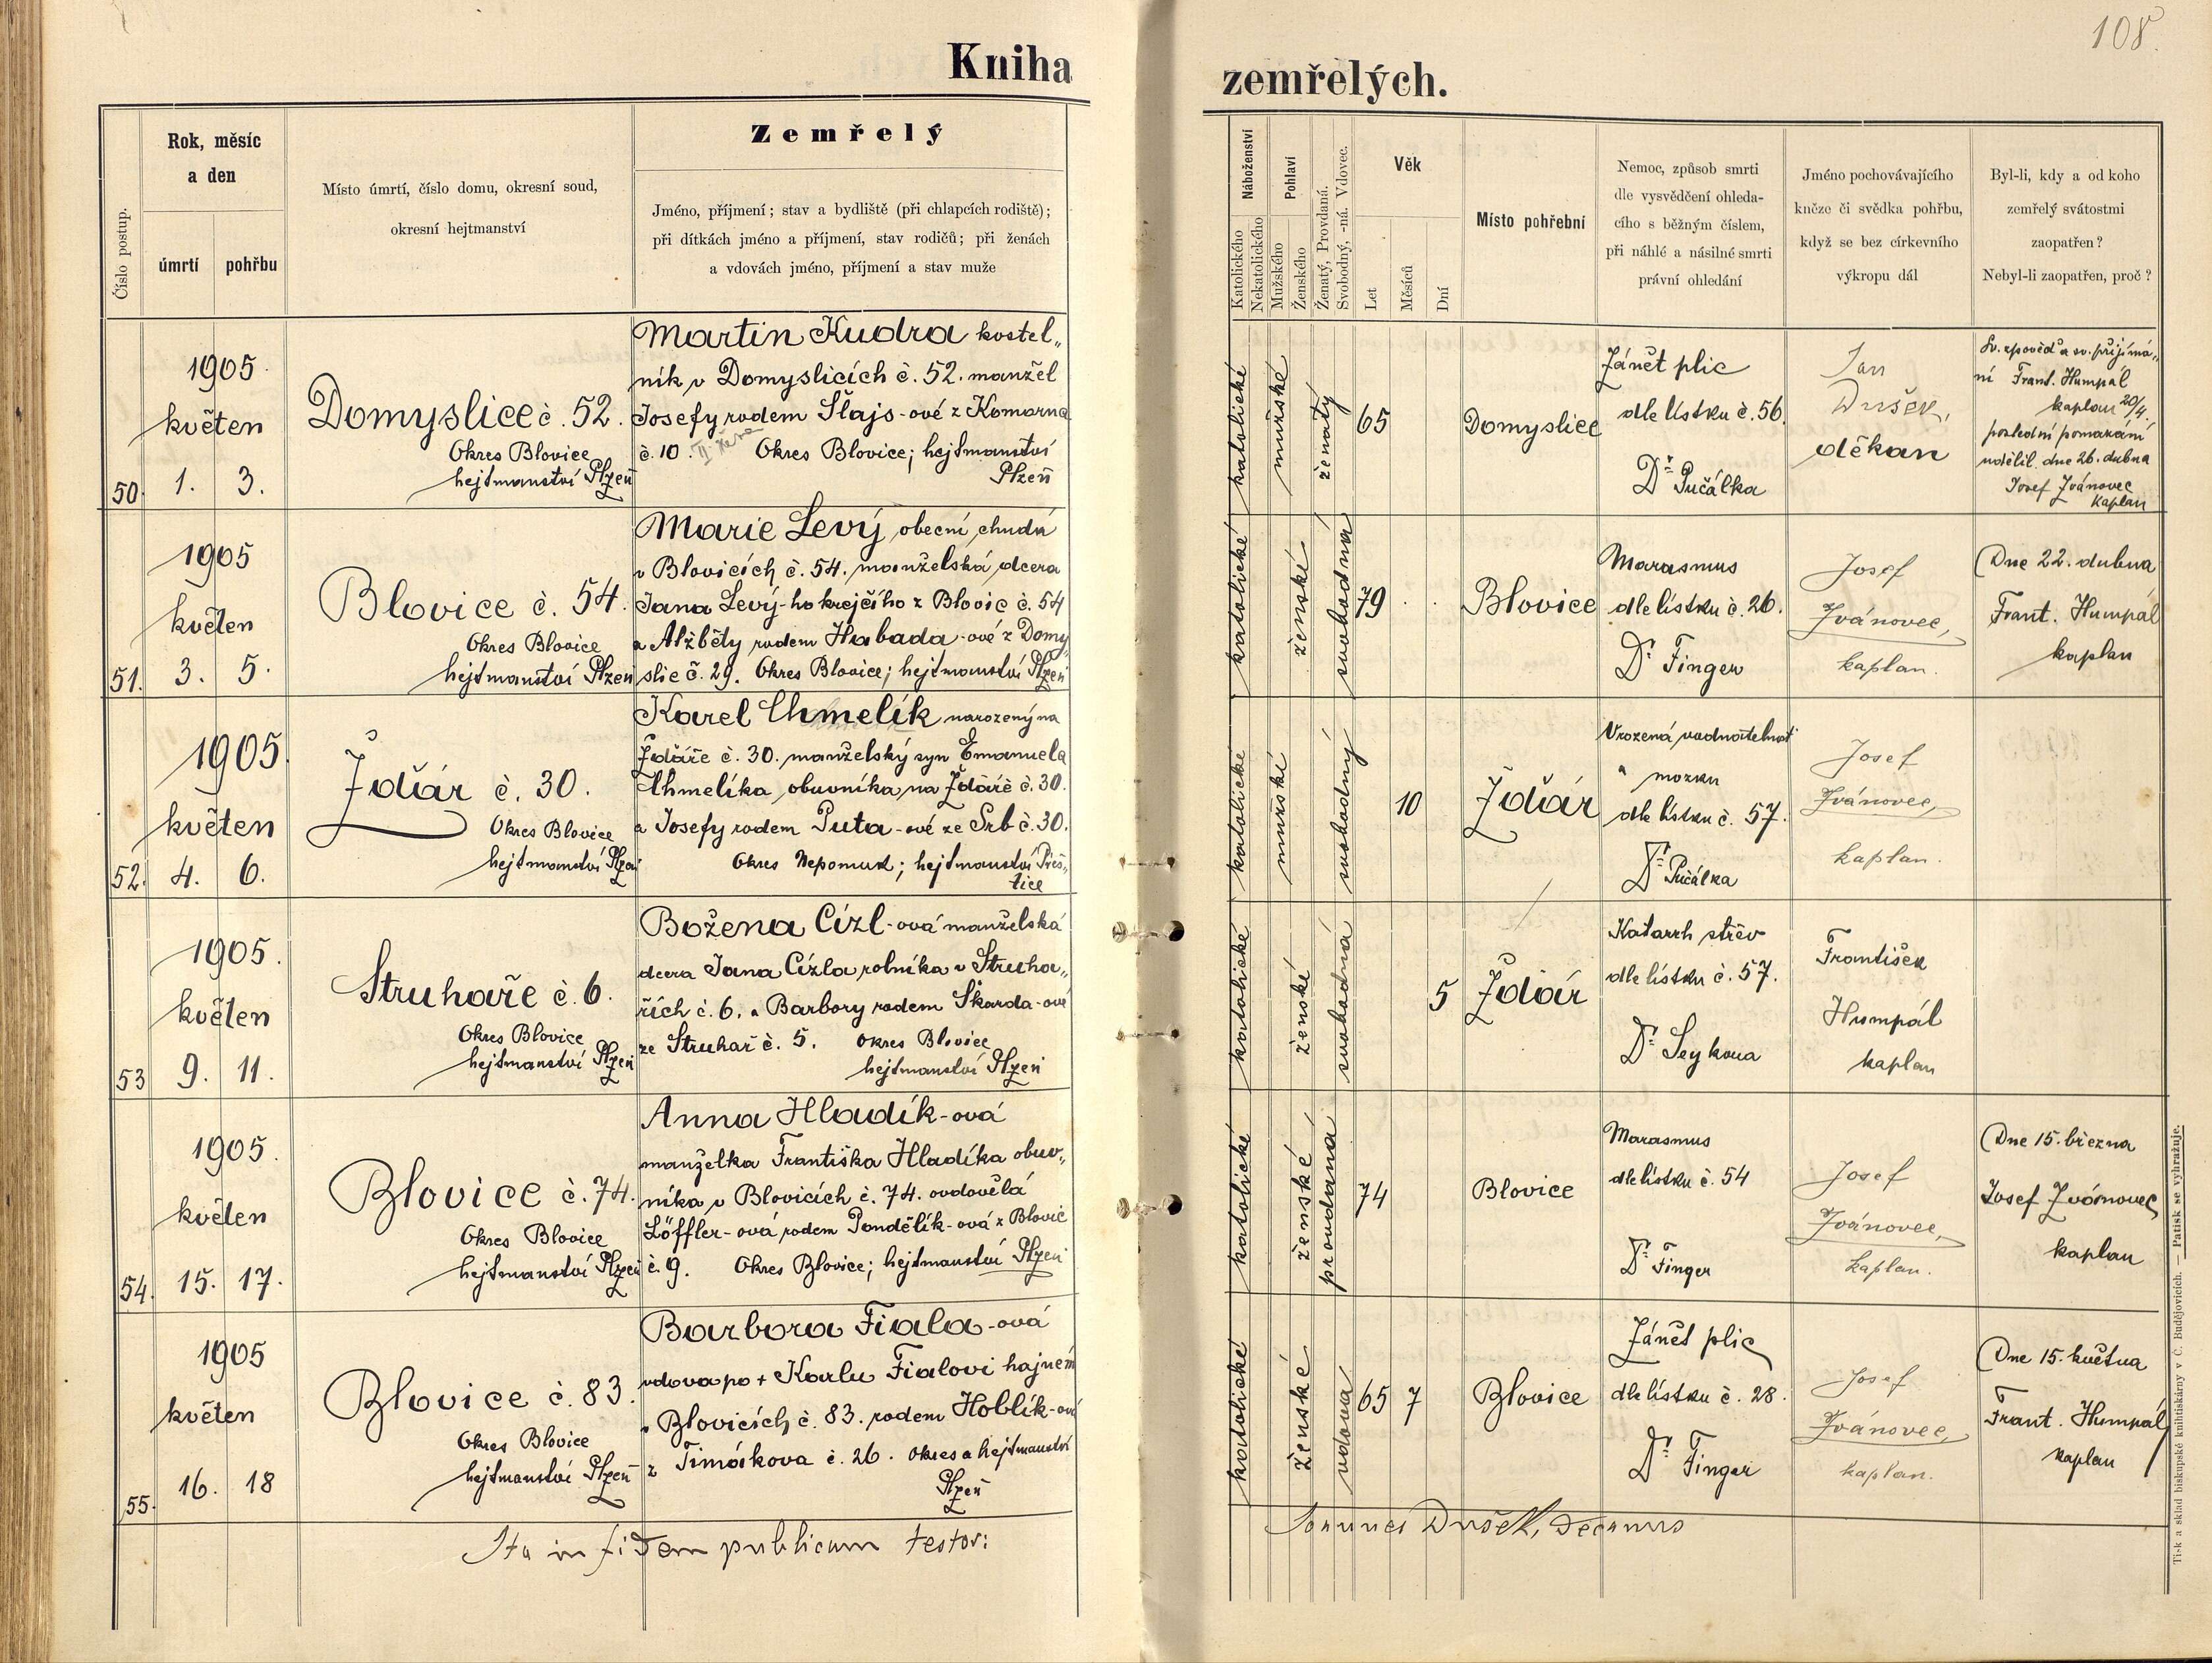 108.
Kniha zemřelých.
Číslo postup.
Rok, měsíc
a den
úmrtí
pohřbu
Místo úmrtí, číslo domu, okresní soud,
okresní hejtmanství
Zemřelý
Jméno, příjmení; stav a bydliště (při chlapcích rodiště);
při dítkách jméno a příjmení, stav rodičů; při ženách
a vdovách jméno, příjmení a stav muže
Náboženství
Katolického
Nekatolického
Pohlaví
Mužského
Ženského
Ženatý, Provdaná.
Svobodný, -ná. Vdovec.
Věk
Let
Měsíců
Dní
Místo pohřební
Nemoc, způsob smrti
dle vysvědčení ohleda-
cího s běžným číslem,
při náhlé a násilné smrti
právní ohledání
Jméno pochovávajícího
kněze či svědka pohřbu,
když se bez církevního
výkropu dál
Byl-li, kdy a od koho
zemřelý svátostmi
zaopatřen?
Nebyl-li zaopatřen, proč?
50.
1905
květen
1. 3.
Domyslice č. 52.
Okres Blovice
hejtmanství Plzeň
Martin Kudra kostel„
ník v Domyslicích č. 52. manžel
Josefy rodem Šlajs-ové z Komorna
č. 10. II. žena Okres Blovice; hejtmanství
Plzeň
katolické
mužské
ženatý
65
Domyslice
Zánět plic
dle lístku č. 56.
Dr. Pučálka
Jan
Dušek,
děkan
Sv. zpověď a sv. přijímá„
ní Frant. Humpál
kaplan 20/4.
poslední pomazání
udělil dne 26. dubna
Josef Ivánovec
kaplan
51.
1905
květen
3. 5.
Blovice č. 54.
Okres Blovice
hejtmanství Plzeň
Marie Levý, obecní chudá
v Blovicích č. 54. manželská dcera
Jana Levý-ho krejčího z Blovic č. 54
a Alžběty rodem Habada-ové z Domy„
slic č. 29. Okres Blovice; hejtmanství Plzeň
katolické
ženské
svobodná
79
Blovice
Marasmus
dle lístku č. 26.
Dr. Finger
Josef
Ivánovec,
kaplan.
Dne 22. dubna
Frant. Humpál
kaplan
52.
1905
květen
4. 6.
Ždiár č. 30.
Okres Blovice
hejtmanství Plzeň
Karel Chmelík narozený na
Ždáře č. 30. manželský syn Emanuela
Chmelíka, obuvníka, na Ždáře č. 30.
a Josefy rodem Puta-ové ze Srb č. 30.
Okres Nepomuk; hejtmanství Přeš„
tice
katolické
mužské
svobodný
10
Ždiár
Vrozená vodnatelnost
mozku
dle lístku č. 57.
Dr. Pučálka
Josef
Ivánovec,
kaplan.
53
1905.
květen
9. 11.
Struhaře č. 6.
Okres Blovice
hejtmanství Plzeň
Božena Cízl-ová manželská
dcera Jana Cízla rolníka v Struha„
řích č. 6. a Barbory rodem Škarda-ové
ze Struhař č. 5. Okres Blovice
hejtmanství Plzeň
katolické
ženské
svobodná
5
Ždiár
Katarrh střev
dle lístku č. 57.
Dr. Seykora
František
Humpál
kaplan
54.
1905.
květen
15. 17.
Blovice č. 74.
Okres Blovice
hejtmanství Plzeň
Anna Hladík-ová
manželka Františka Hladíka obuv„
níka v Blovicích č. 74. ovdovělá
Löffler-ová rodem Pondělík-ová z Blovic
č. 9. Okres Blovice; hejtmanství Plzeň
katolické
ženské
provdaná
74
Blovice
Marasmus
dle lístku č. 54
Dr. Finger
Josef
Ivánovec,
kaplan.
Dne 15. března
Josef Ivánovec
kaplan
55.
1905
květen
16. 18
Blovice č. 83.
Okres Blovice
hejtmanství Plzeň
Barbora Fiala-ová
vdova po + Karlu Fialovi hajném
v Blovicích č. 83. rodem Hoblík-ová
z Timákova č. 26. Okres a hejtmanství
Plzeň
katolické
ženské
vdova
65 7
Blovice
Zánět plic
dle lístku č. 28.
Dr. Finger
Josef
Ivánovec,
kaplan.
Dne 15. května
Frant. Humpál
kaplan
Ita in fidem publicam testor:
Joannes Dušek, decanus
Tisk a sklad biskupské knihtiskárny v Č. Budějovicích. — Patisk se vyhražuje.